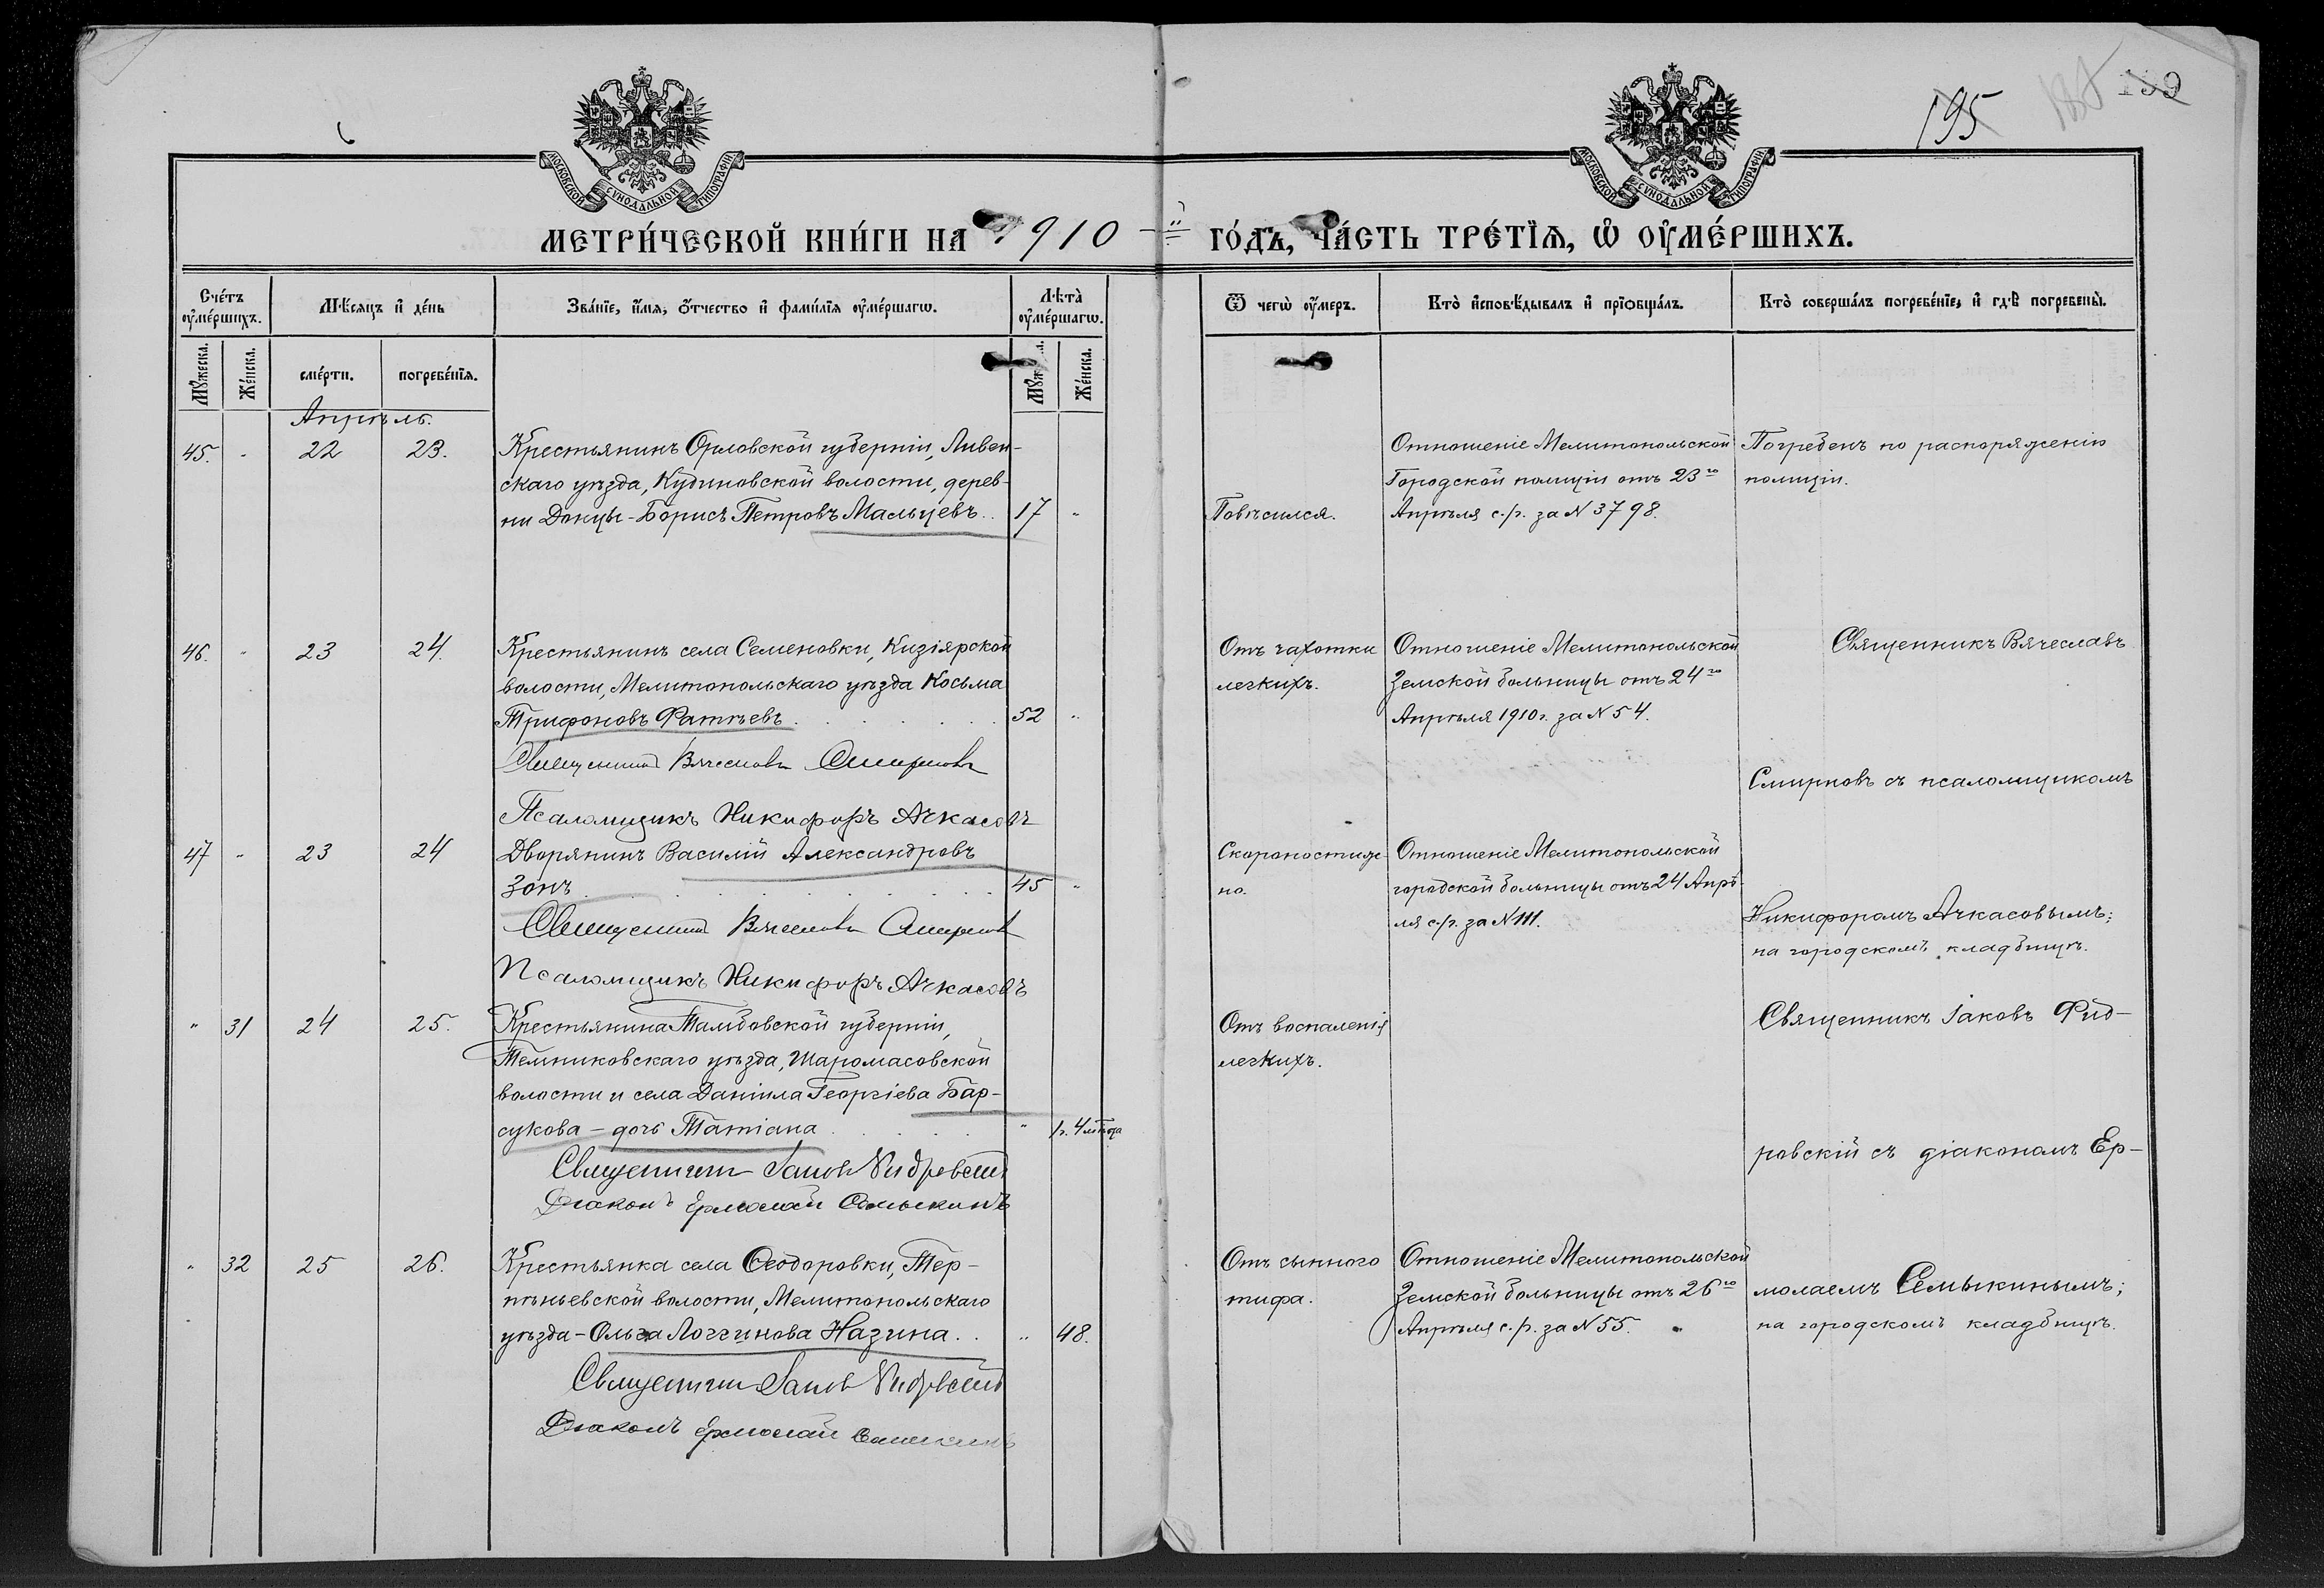 195
185
199
МОСКОВСКОЙ СѴНОДАЛЬНОЙ ТИПОГРАФІИ
МОСКОВСКОЙ СѴНОДАЛЬНОЙ ТИПОГРАФІИ
МЕТРИ́ЧЕСКОЙ КНИ́ГИ НА 1910-й ГО́ДЪ, ЧА́СТЬ ТРЕ́ТЇѦ, Ѡ ОУ҆МЕ́РШИХЪ.
Сче́тъ оу҆ме́ршихъ.
Мꙋ́жеска.
Же́нска.
Мѣ́сяцъ и҆ де́нь
сме́рти.
погребе́нїѧ.
Зва́нїе, и҆́мѧ, ѻ҆́тчество и҆ фами́лїѧ оу҆ме́ршагѡ.
Лѣ́та̀ оу҆ме́ршагѡ.
Мꙋж
Же́нска.
Ѿ чегѡ̀ оу҆́меръ.
Кто̀ и҆сповѣ́дывалъ и҆ прїѡбща́лъ.
Кто̀ соверша́лъ погребе́нїе, и҆ гдѣ̀ погребены̀.
Апрѣль.
45. - 22 23. Крестьянинъ Орловской губерніи, Ливен-
скаго уѣзда, Кудиновской волости, дерев-
ни Донцы - Борисъ Петровъ Мальцевъ.. 17 "
Повѣсился.
Отношеніе Мелитопольской
Городской полиціи отъ 23го
Апрѣля с.г. за N 3798.
Погребенъ по распоряженію
полиціи.
46. " 23 24. Крестьянинъ села Семеновки, Кизіярской
волости, Мелитопольскаго уѣзда Косьма
Трифоновъ Фатѣевъ. 52 "
Священникъ Вячеславъ Смирновъ
Псаломщикъ Никифоръ Ачкасовъ
Отъ чахотки
легкихъ.
Отношеніе Мелитопольской
Земской больницы отъ 24го
Апрѣля 1910г. за N 54.
Священникъ Вячеславъ
Смирновъ съ псаломщикомъ
47 " 23 24 Дворянинъ Василій Александровъ
Зонъ. 45 "
Священникъ Вячеславъ Смирновъ
Псаломщикъ Никифоръ Ачкасовъ
Скоропостиж-
но.
Отношеніе Мелитопольской
городской больницы отъ 24 Апрѣ-
ля с.г. за N 111.
Никифоромъ Ачкасовымъ;
на городскомъ кладбищѣ.
" 31 24 25. Крестьянина Тамбовской губерніи,
Темниковскаго уѣзда, Шаромасовской
волости и села Даніила Георгіева Бар-
сукова - дочь Татіана "
Священникъ Іаковъ Ѳидровскій
Діаконъ Ермолай Семыкинъ
Отъ воспаленія
легкихъ.
Священникъ Іаковъ Фид-
ровскій съ діакономъ Ер-
" 32 25 26. Крестьянка села Ѳеодоровки, Тер-
пѣньевской волости, Мелитопольскаго
уѣзда - Ольга Логгинова Назина.. " 48.
Священникъ Іаковъ Ѳидровскій
Діаконъ Ермолай Семыкинъ
Отъ сыпного
тифа.
Отношеніе Мелитопольской
Земской больницы отъ 26го
Апрѣля с.г. за N 55.
молаемъ Семыкинымъ;
на городскомъ кладбищѣ.